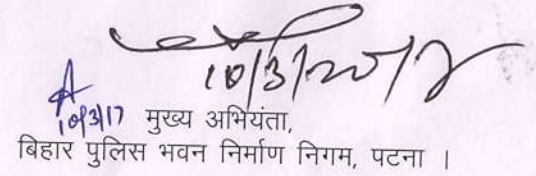 10/3/2017
10/3/17 मुख्य अभियंता,
बिहार पुलिस भवन निर्माण निगम, पटना ।